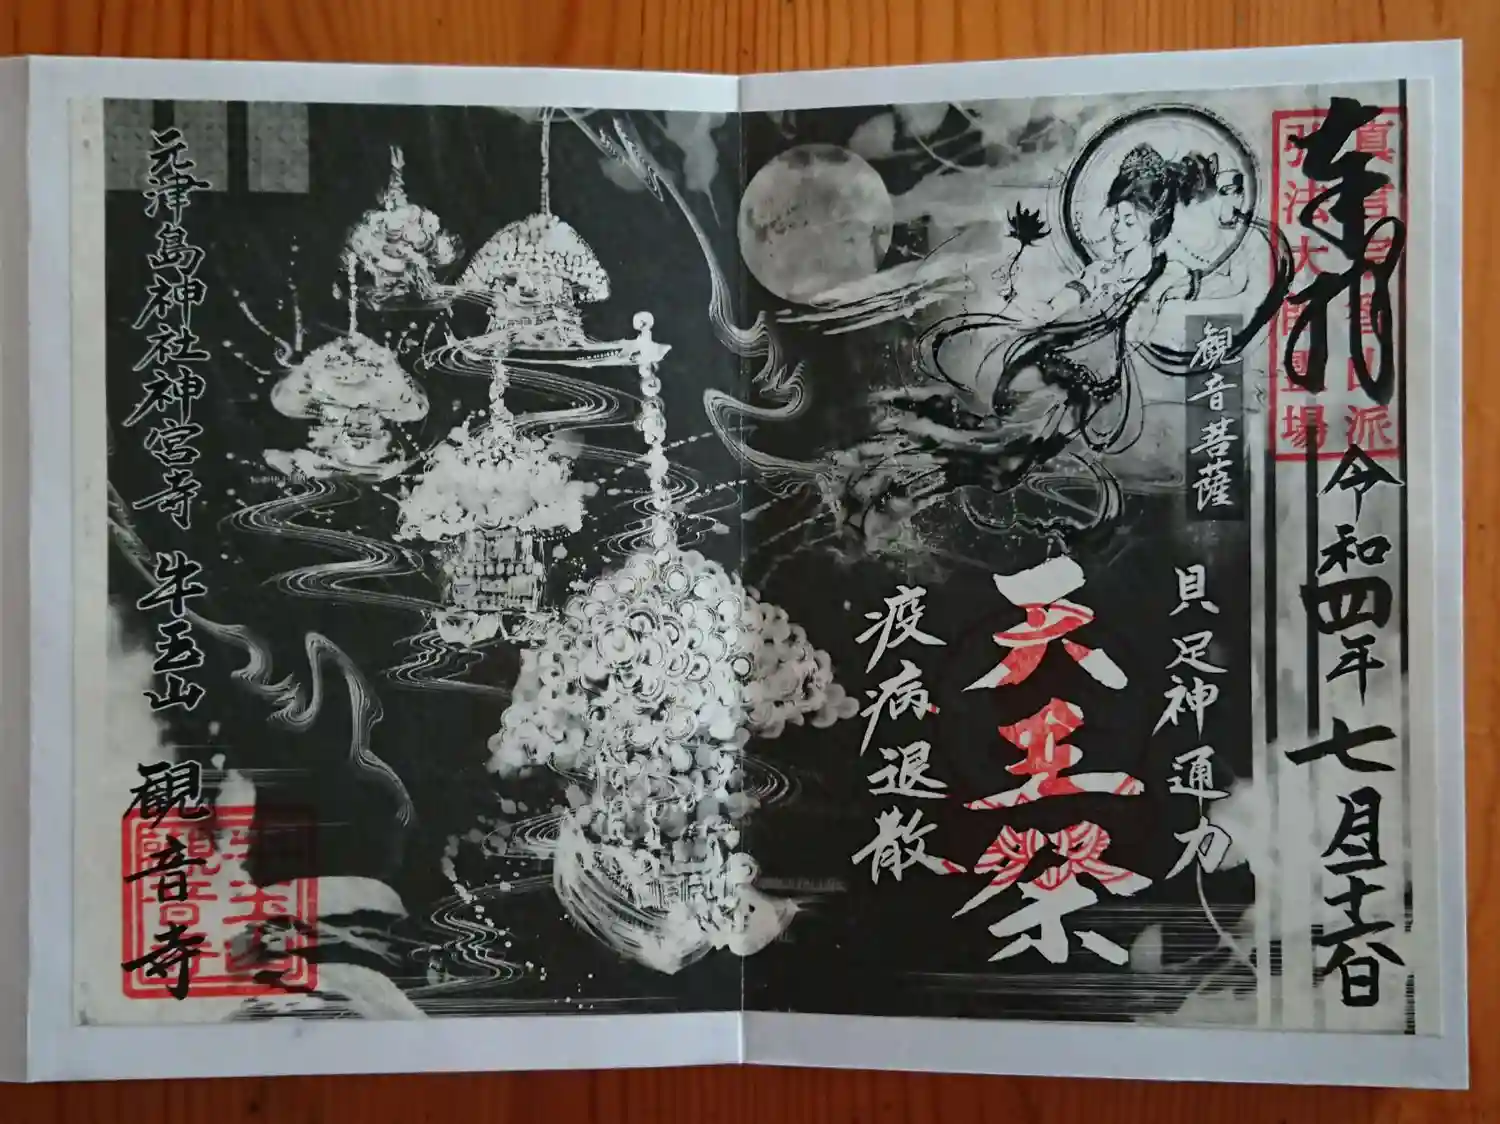 奉拝
真言宗智山派
弘法大師霊場
令和四年七月二十六日
観音菩薩
具足神通力
天王祭
疫病退散
元津島神社神宮寺 牛玉山
観音寺